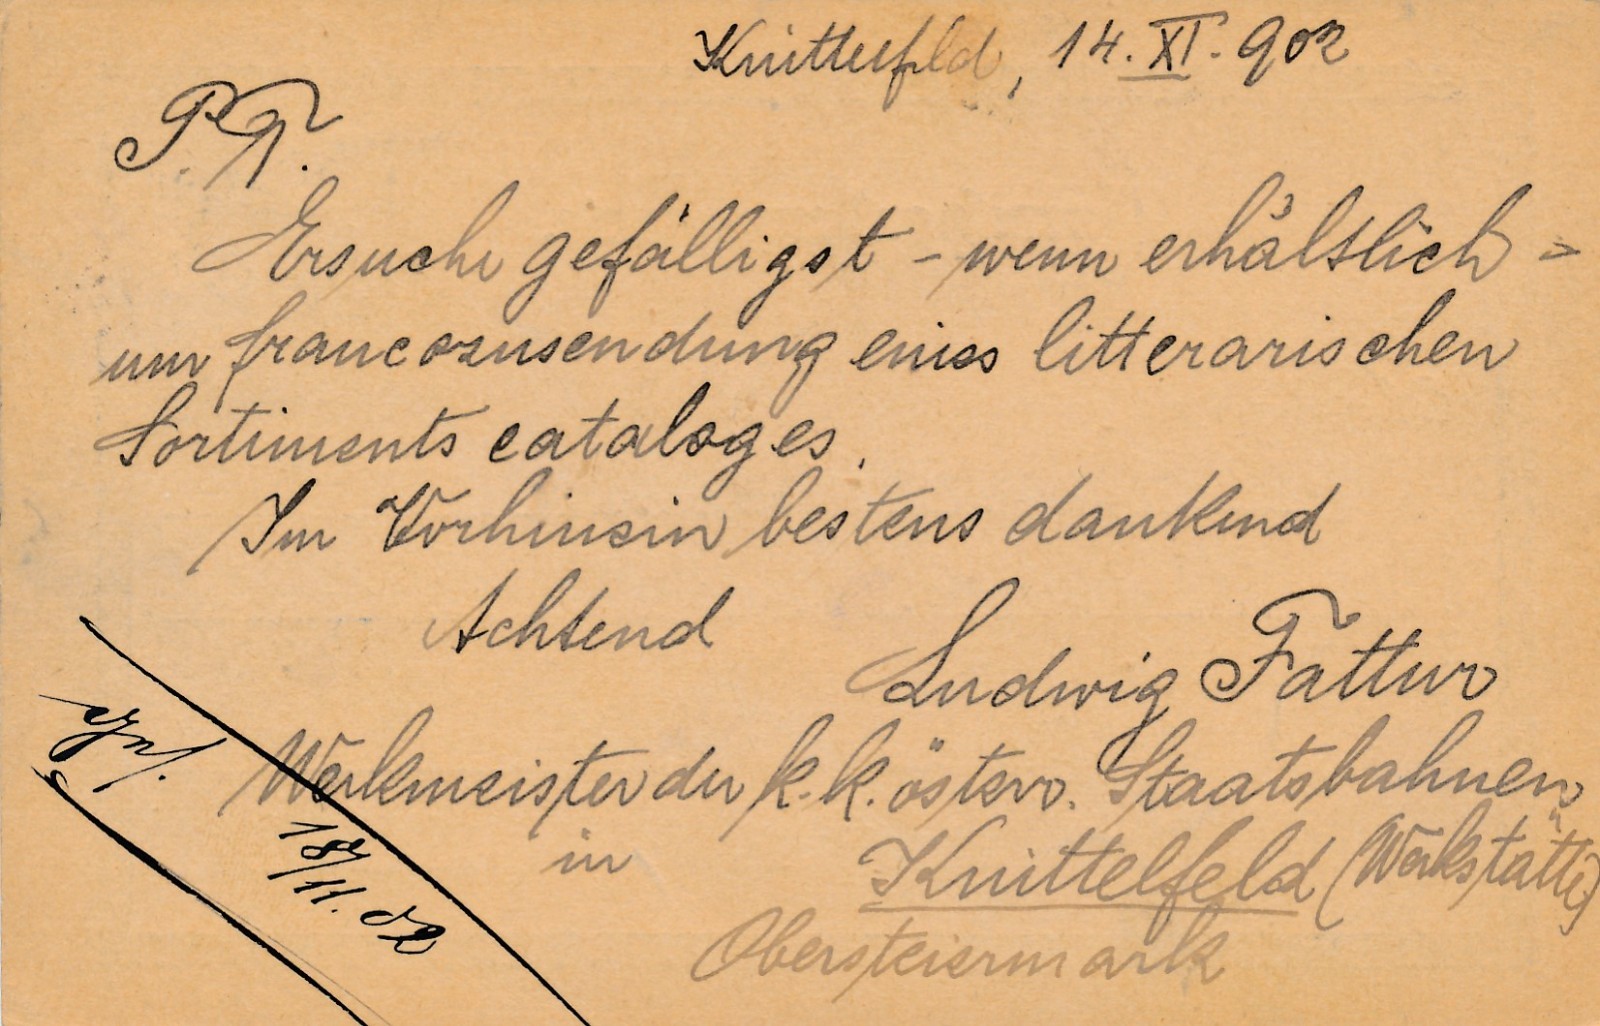 Knittelfeld, 14. XI. 902
P. T.
Ersuche gefälligst - wenn erhältlich -
um francozusendung eines litterarischen
Sortiments cataloges.
Im Vorhinein bestens dankend
Achtend
Ludwig Fattur
Werkmeister der k. k. österr. Staatsbahnen
in Knittelfeld (Werkstätte)
Obersteiermark
18/11. 02